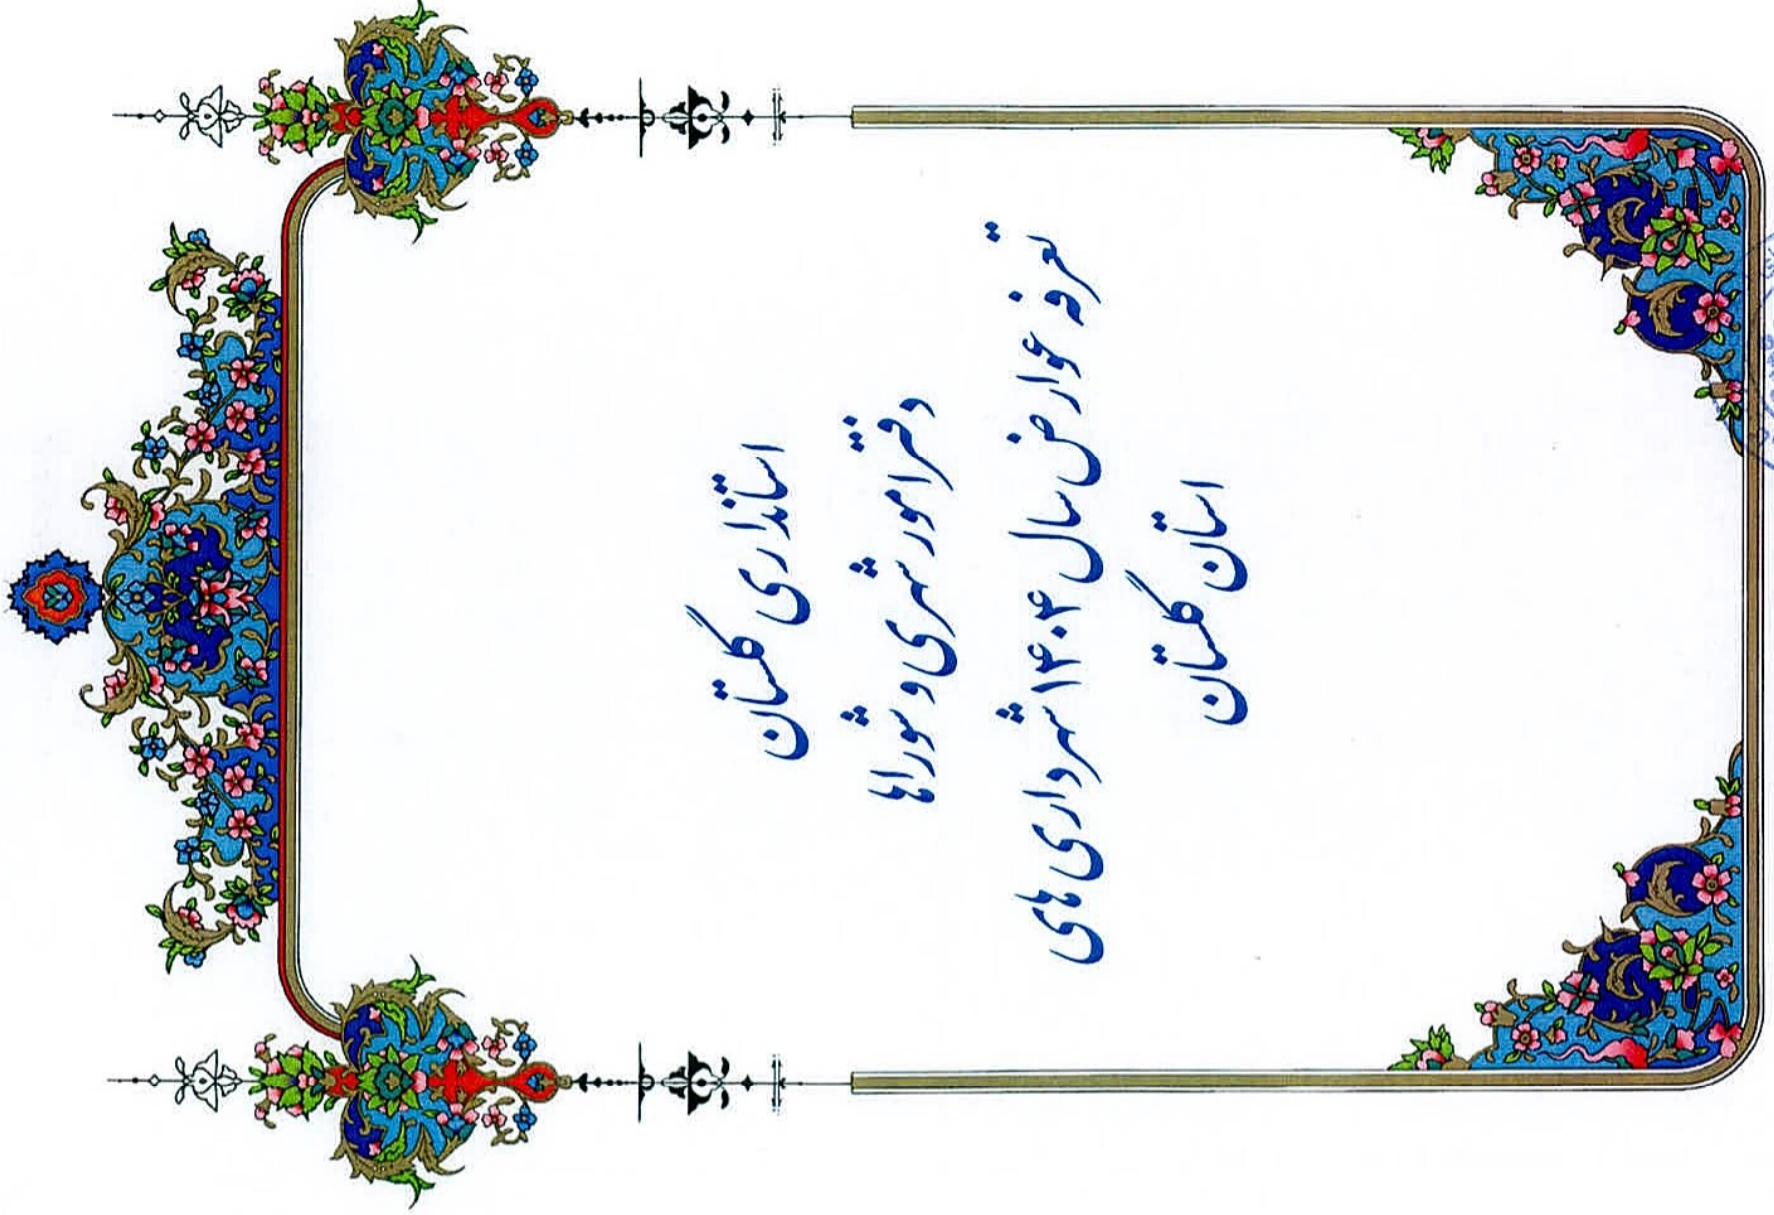 استانداری گلستان
دفتر امور شهری و شوراها
تعرفه عوارض سال ۱۴۰۴ شهرداری های
استان گلستان